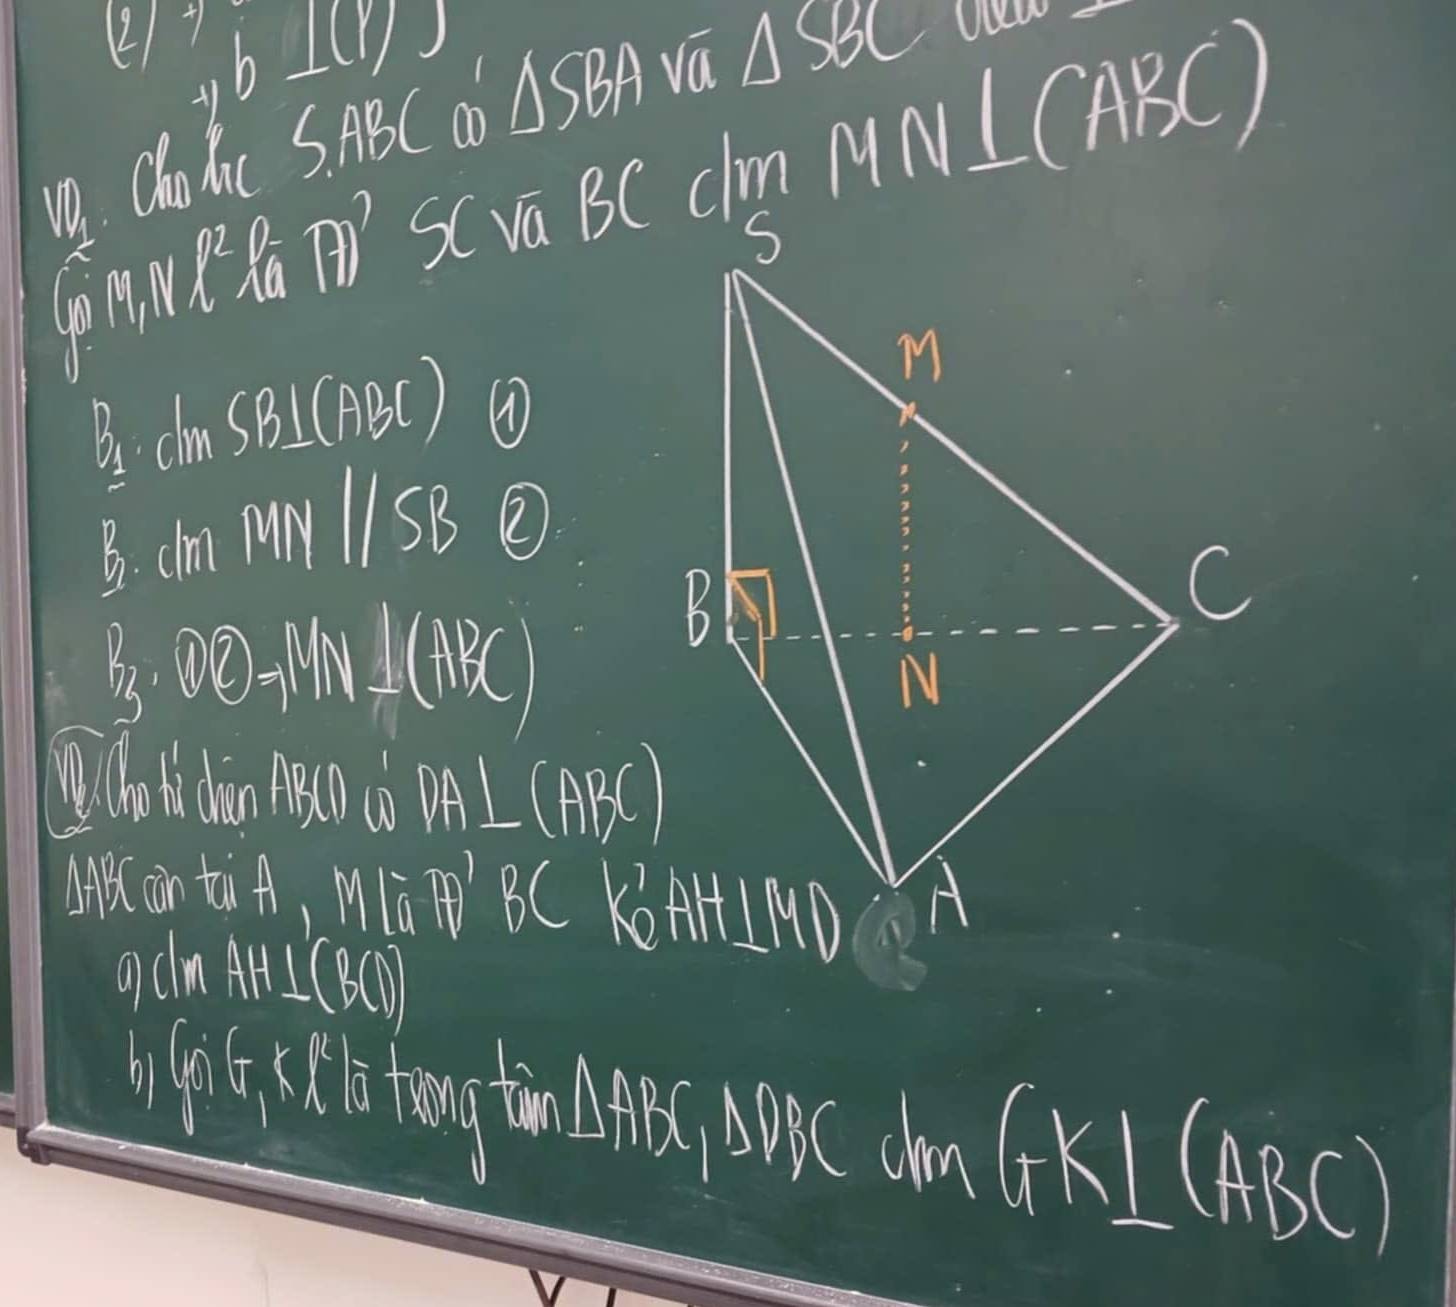 (2)
+) b ⊥ (P) }
VD1. Cho hc S.ABC có ΔSBA và ΔSBC
Gọi M, N l² là TĐ' SC và BC c/m MN ⊥ (ABC)
B1: c/m SB ⊥ (ABC) ①
B2: c/m MN // SB ②
B3. ①② ⇒ MN ⊥ (ABC)
S
M
B
C
N
A
VD2/ Cho tứ diện ABCD có DA ⊥ (ABC)
ΔABC cân tại A, M là TĐ' BC Kẻ AH ⊥ MD
a) c/m AH ⊥ (BCD)
b) Gọi G, K l² là trọng tâm ΔABC, ΔDBC c/m GK ⊥ (ABC)